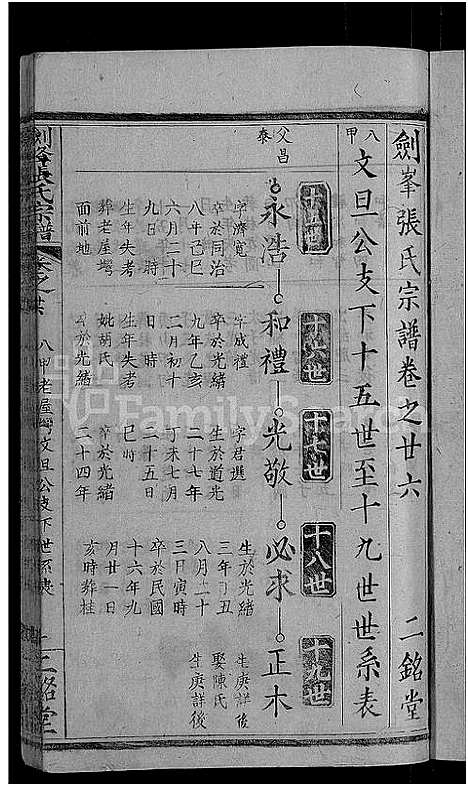 劍峯張氏宗譜卷之廿六 二銘堂
八甲
文旦公支下十五世至十九世世系表
十五世
十六世
十七世
十八世
十九世
父昌泰
永浩 和禮 光敬 必求 正木
字濟寬
卒於同治
八年己巳
六月二十
九日 時
生年失考
葬老屋塆
面前地
字成禮
卒於光緒
九年乙亥
二月初十
日 時
生年失考
妣胡氏
卒於光緒
字君選
生於道光
二十七年
丁未七月
二十五日
巳時
卒於光緒
二十四年
生於光緒
三年丁丑
八月二十
三日寅時
卒於民國
十六年九
月廿一日
亥時葬桂
生庚詳後
娶陳氏
生庚詳後
劍峯張氏宗譜 卷之廿六 八甲老屋塆文旦公支下世系表 二銘堂
FamilySearch